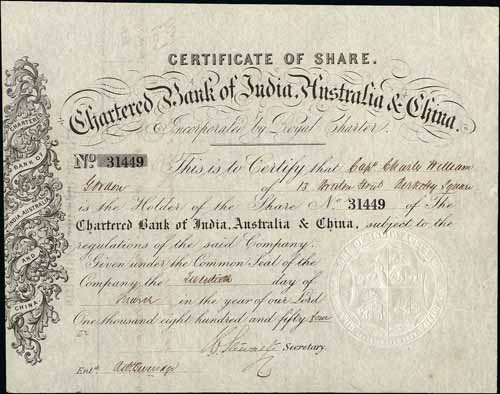 CERTIFICATE OF SHARE.
Chartered Bank of India, Australia & China.
Incorporated by Royal Charter.
No 31449 This is to Certify that Capt Charles William
Gordon of 13 Berkeley Square
is the Holder of the Share No 31449 of The
Chartered Bank of India, Australia & China, subject to the
regulations of the said Company.
Given under the Common Seal of the
Company the Twentieth day of
March in the year of our Lord
One thousand eight hundred and fifty four
Secretary.
Entd
CHARTERED
BANK OF
INDIA AUSTRALIA
AND
CHINA